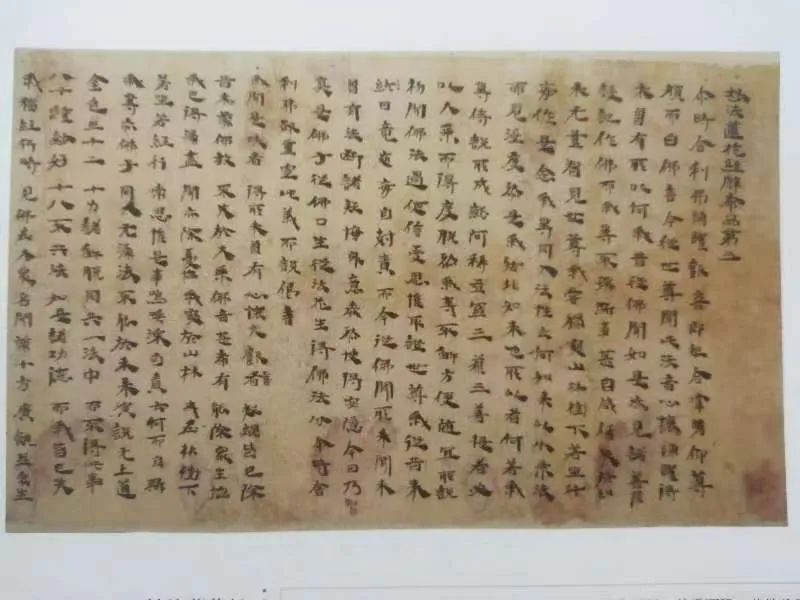 妙法蓮花經譬喻品第三
尒時舍利弗踊躍歡喜即起合掌瞻仰尊
顏而白佛言今從世尊聞此法音心懷踊躍得
未曾有所以何我昔從佛聞如是法見諸菩薩
授記作佛而我等不預斯事甚自感傷失於如
來无量智見世尊我常獨處山林樹下若坐若行
每作是念我等同入法性云何如來以小乘法
而見濟度是我咎非如來也所以者何若我
等待說所成就阿耨三藐三菩提者必
以大乘而得度脫然我等不解方便隨宜所說
初聞佛法遇便信受思惟取證世尊我從昔來
終日竟夜每自剋責而今從佛聞所未聞未
曾有法斷諸疑悔身意泰然快得安隱今日乃知
真是佛子從佛口生從法化生得佛法分尒時舍
利弗欲重宣此義而說偈言
我聞是法音 得所未曾有 心懷大歡喜 疑網皆已除
昔來蒙佛教 不失於大乘 佛音甚希有 能除眾生惱
我已得漏盡 聞亦除憂惱 我處於山林 或在林樹下
若坐若經行 常思惟是事 嗚呼深自責 云何而自欺
我等亦佛子 同入无漏法 不能於未來 演說无上道
金色三十二 十力諸解脫 同共一法中 而不得此事
八十種妙好 十八不共法 如是諸功德 而我皆已失
我獨經行時 見佛在大眾 名聞滿十方 廣饒益眾生